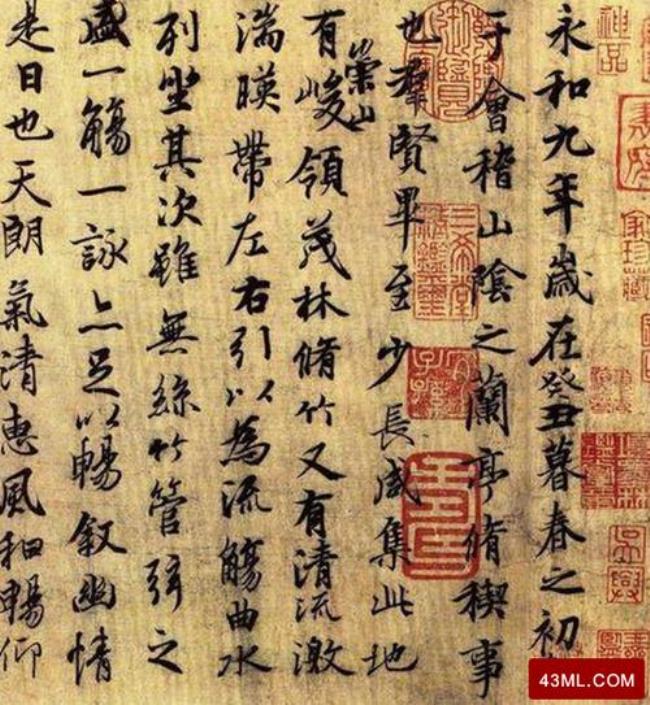 永和九年歲在癸丑暮春之初
于會稽山陰之蘭亭脩稧事
也羣賢畢至少長咸集此地
有崇山峻領茂林脩竹又有清流激
湍暎帶左右引以為流觴曲水
列坐其次雖無絲竹管弦之
盛一觴一詠亦足以暢叙幽情
是日也天朗氣清惠風和暢仰
神品
三希堂
家珍藏
43ML.COM